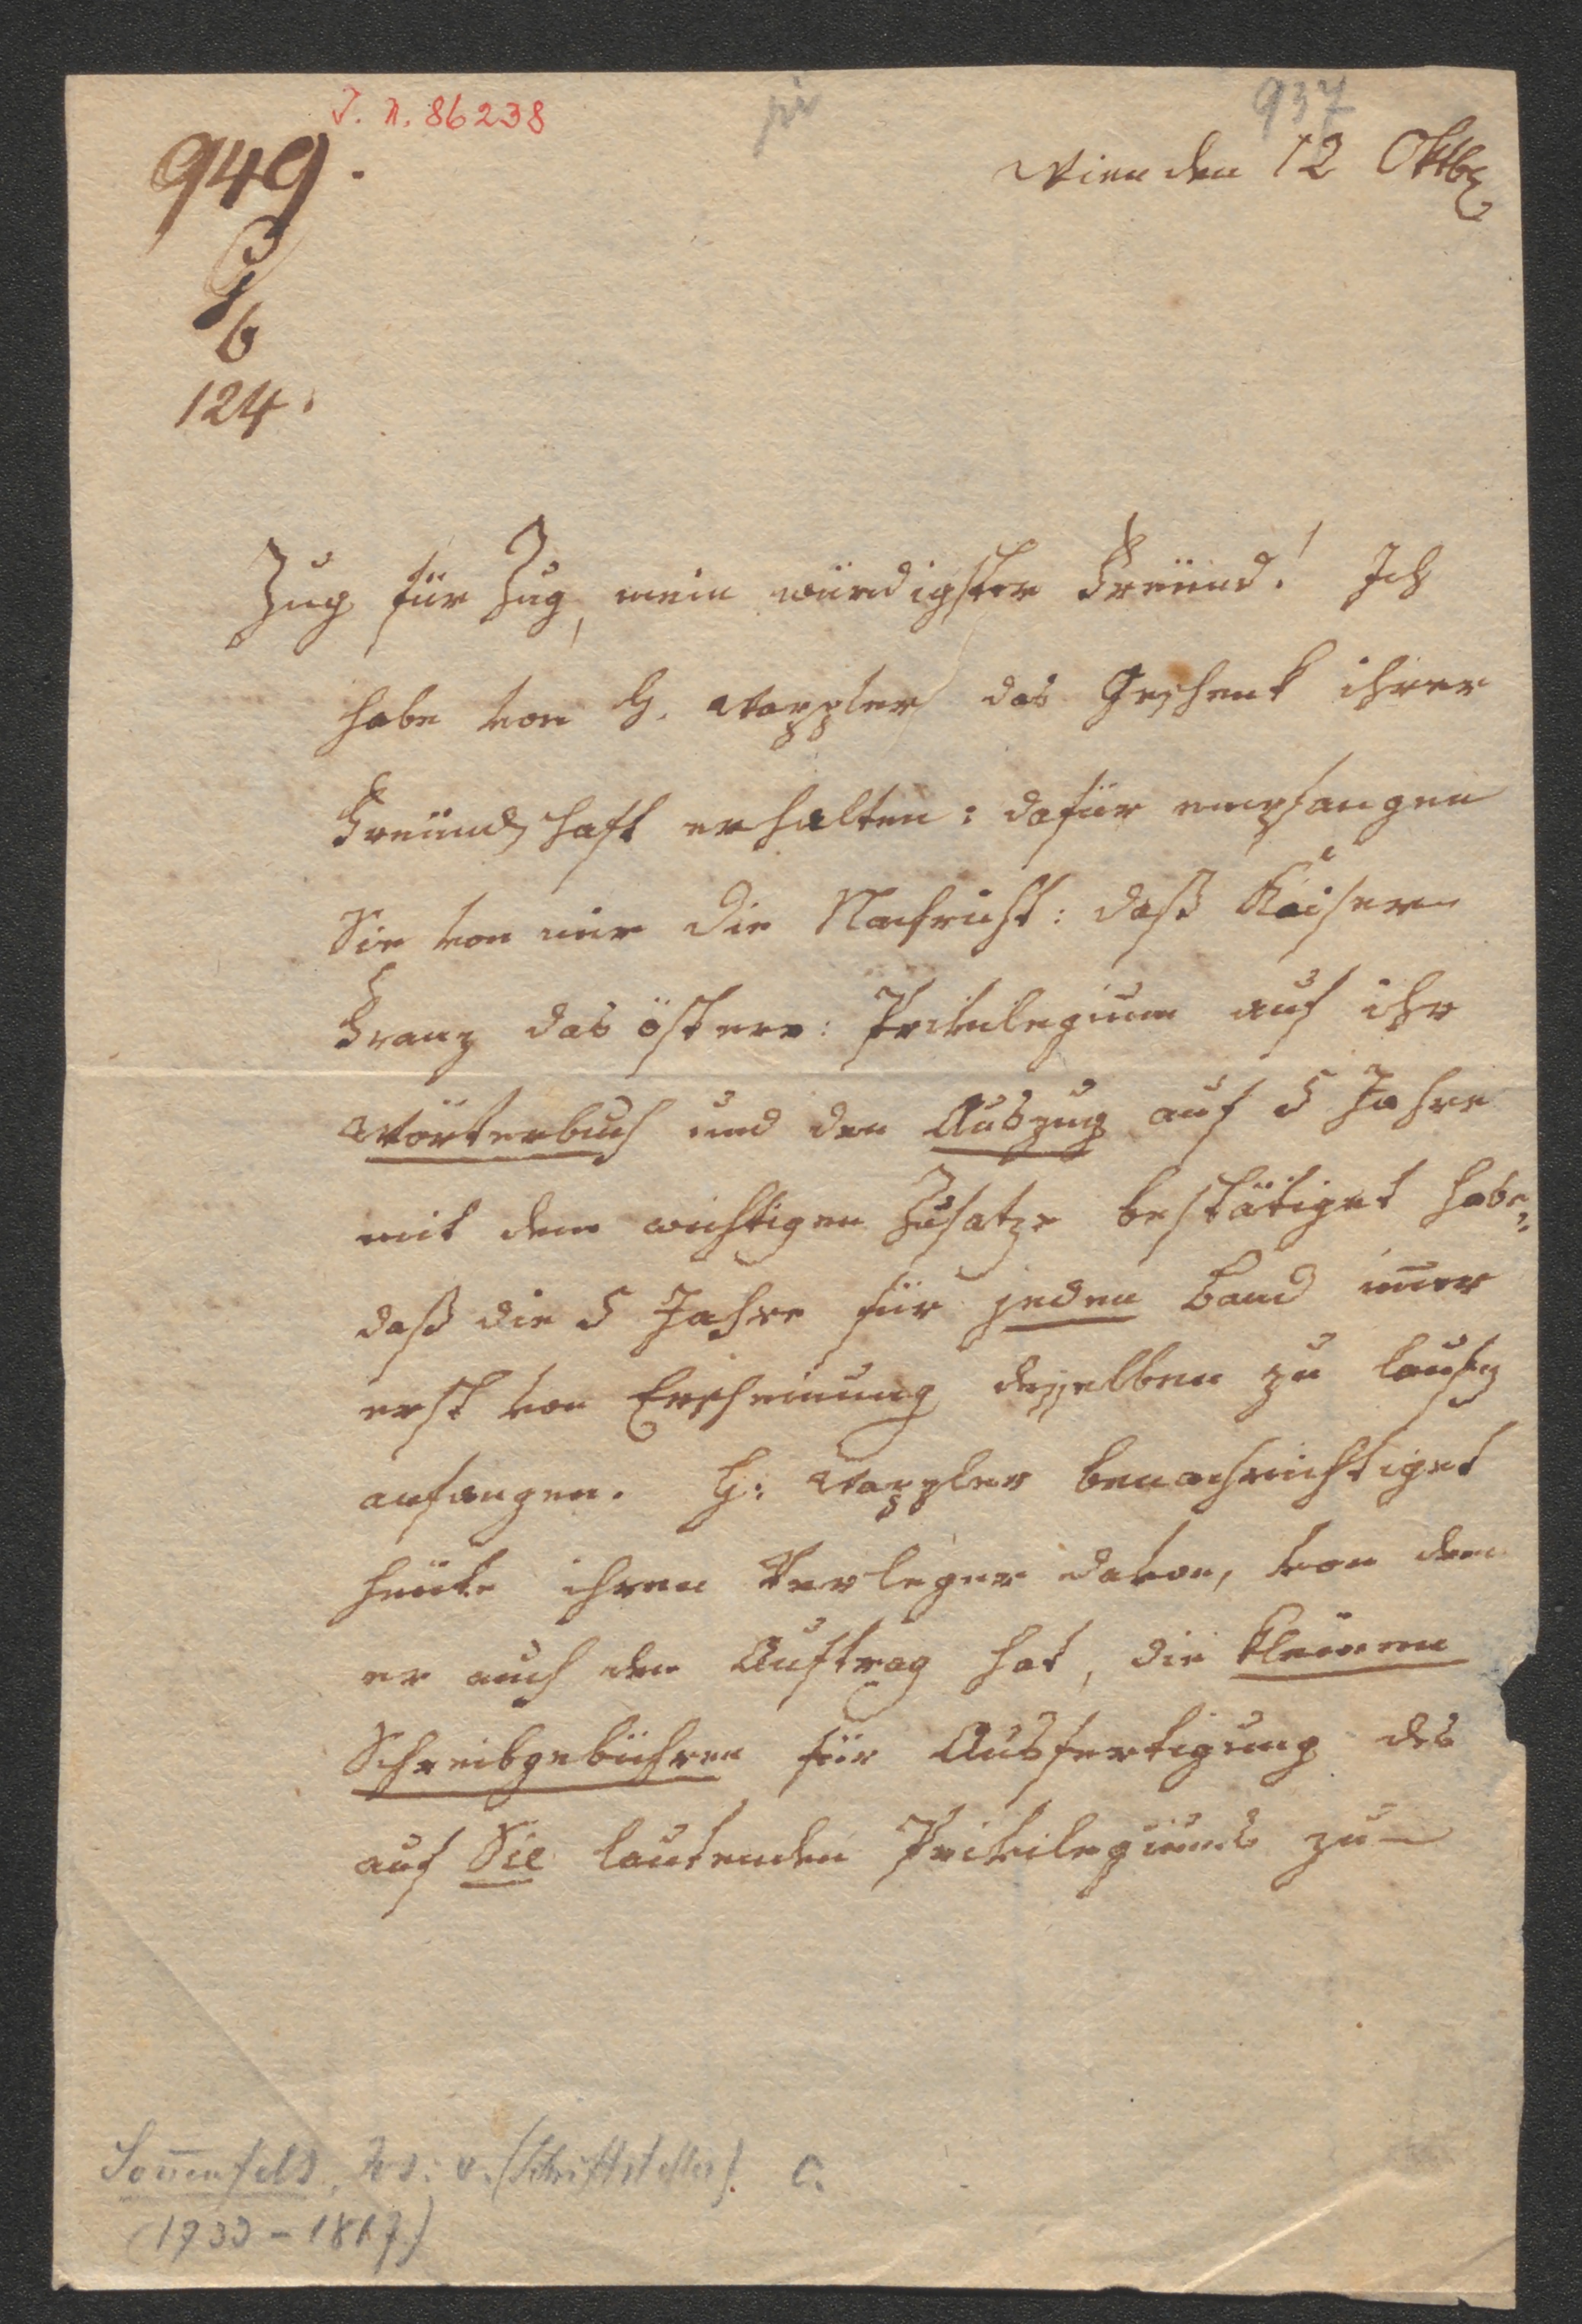 I. N. 86238
937
949.
Wien den 12 Oktb
6
124.
Zug für Zug, mein würdigster Freünd! Ich
habe von H. Wappler das Geschenk ihrer
Freündschaft erhalten: dafür empfangen
Sie von mir die Nachricht: daß Kaiser
Franz das österr: Privilegium auf ihr
Wörterbuch und den Auszug auf 5 Jahre
mit dem wichtigen Zusatze bestätiget habe,
daß die 5 Jahre für jeden Band im̅er
erst von Erscheinung desselben zu laufen
anfangen. H: Wappler benachrichtiget
heüte ihren Verleger davon, von dem
er auch den Auftrag hat, die kleinen
Schreibgebühren für Ausfertigung des
auf Sie lautenden Privilegiums zu
Son̅enfels, Jos: v. (Schriftsteller). C.
(1733-1817)